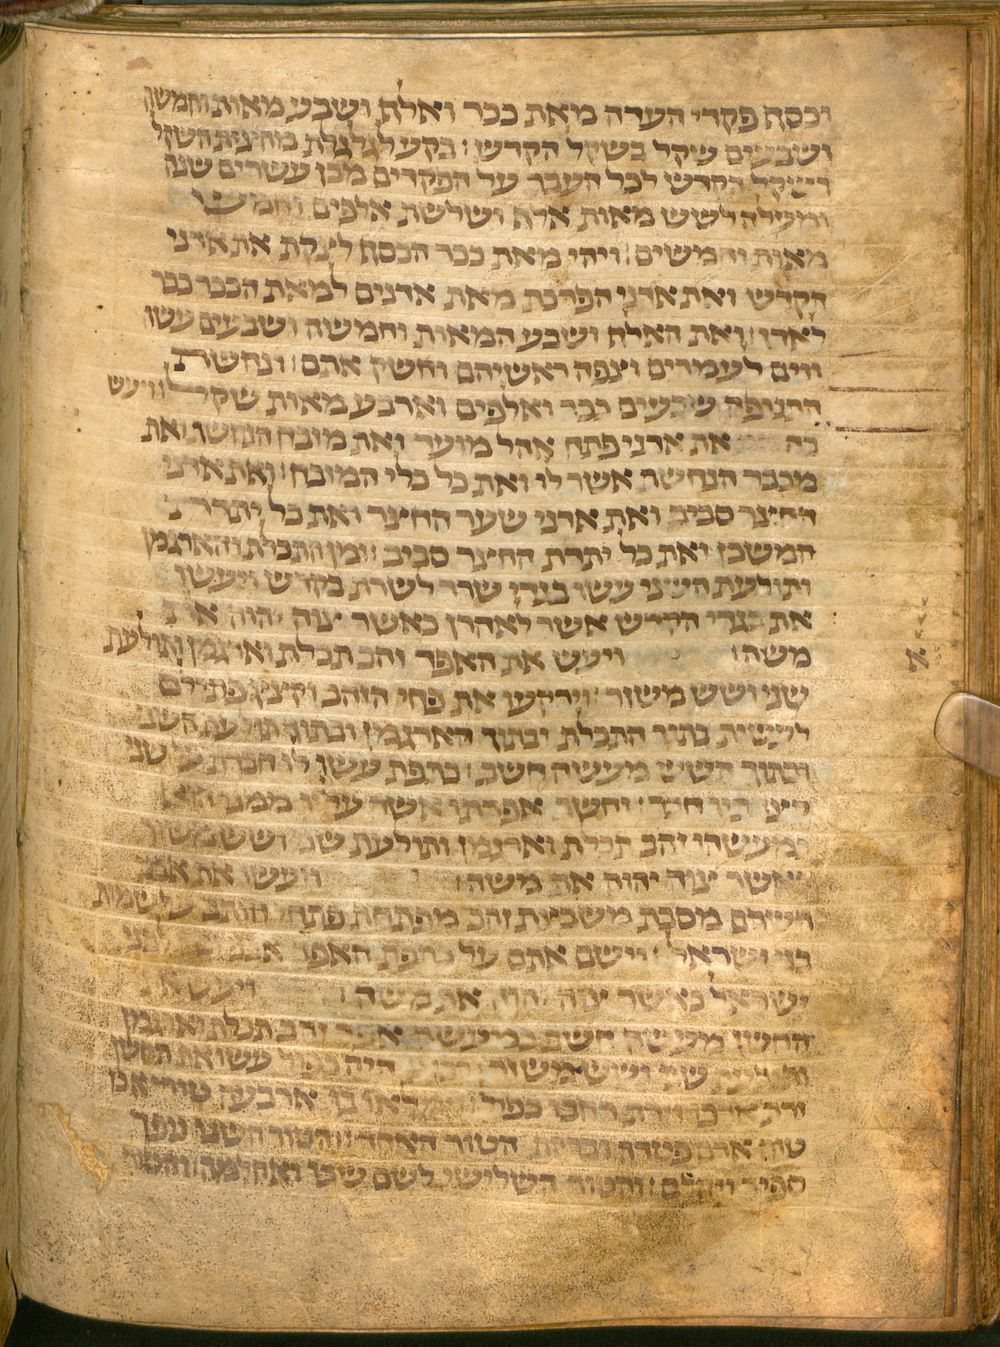 וכסף פקדי העדה מאת ככר ואלף ושבע מאות וחמשה
ושבעים שקל בשקל הקדש בקע לגלגלת מחצית השקל
בשקל הקדש לכל העבר על הפקדים מבן עשרים שנה
ומעלה לשש מאות אלף ושלשת אלפים וחמש
מאות וחמשים ויהי מאת ככר הכסף לצקת את אדני
הקדש ואת אדני הפרכת מאת אדנים למאת הככר ככר
לאדן ואת האלף ושבע המאות וחמשה ושבעים עשה
ווים לעמודים וצפה ראשיהם וחשק אתם ונחשת
התנופה שבעים ככר ואלפים וארבע מאות שקל ויעש
בה את אדני פתח אהל מועד ואת מזבח הנחשת ואת
מכבר הנחשת אשר לו ואת כל כלי המזבח ואת אדני
החצר סביב ואת אדני שער החצר ואת כל יתדת
המשכן ואת כל יתדת החצר סביב ומן התכלת והארגמן
ותולעת השני עשו בגדי שרד לשרת בקדש ויעשו
את בגדי הקדש אשר לאהרן כאשר צוה יהוה את
משה ויעש את האפד זהב תכלת וארגמן ותולעת
א
שני ושש משזר וירקעו את פחי הזהב וקצץ פתילם
לעשות בתוך התכלת ובתוך הארגמן ובתוך תולעת השני
ובתוך השש מעשה חשב כתפת עשו לו חברת על שני
וחשב אפדתו אשר עליו ממנו הוא
כמעשהו זהב תכלת וארגמן ותולעת שני ושש משזר
כאשר צוה יהוה את משה ויעשו את אבני
השהם מסבת משבצת זהב מפתחת פתחי חותם על שמות
בני ישראל וישם אתם על כתפת האפד אבני
ישראל כאשר צוה יהוה את משה ויעש את
החשן מעשה חשב כמעשה אפד זהב תכלת וארגמן
ותולעת שני ושש משזר רבוע היה כפול עשו את החשן
זרת רחבו כפול וימלאו בו ארבעה טורי אבן
טור אדם פטדה וברקת הטור האחד והטור השני נפך
ספיר ויהלם והטור השלישי לשם שבו ואחלמה והטור